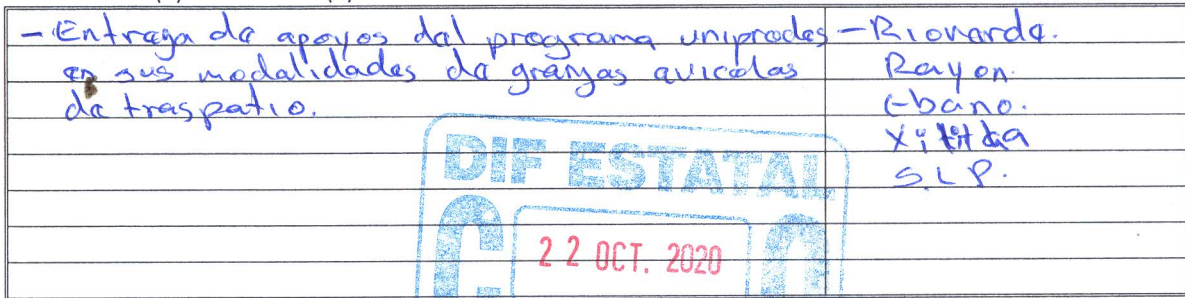 - Entrega de apoyos del programa uniprodes
en sus modalidades de granjas avicolas
de traspatio.
- Rioverde.
Rayon.
Ebano.
Xilitla
S.L.P.
DIF ESTATAL
22 OCT. 2020